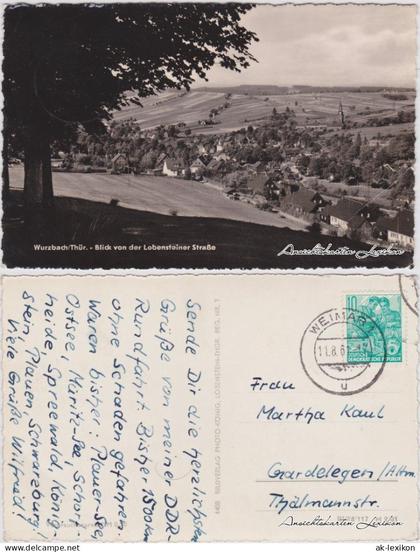 Wurzbach/Thür. - Blick von der Lobensteiner Straße
Ansichtskarten Lexikon
Sende Dir die herzlichsten
Grüße von meiner DDR
Rundfahrt. Bisher 1500km
ohne Schaden gefahren.
Waren bisher: Plauer See,
Ostsee, Müritz-See, Schorf-
heide, Spreewald, König-
stein, Plauen, Schwarzburg.
Viele Grüße Wilfried!
BILDVERLAG PHOTO-KÖNIG, LOBENSTEIN-THÜR. REG. NR. 7
WEIMAR
11.8.6
u
10
DEUTSCHE DEMOKRATISCHE REPUBLIK
Frau
Martha Kaul
Gardelegen/Altm.
Thälmannstr.
Ansichtskarten Lexikon
© ak-lexikon
www.ak-lexikon.de